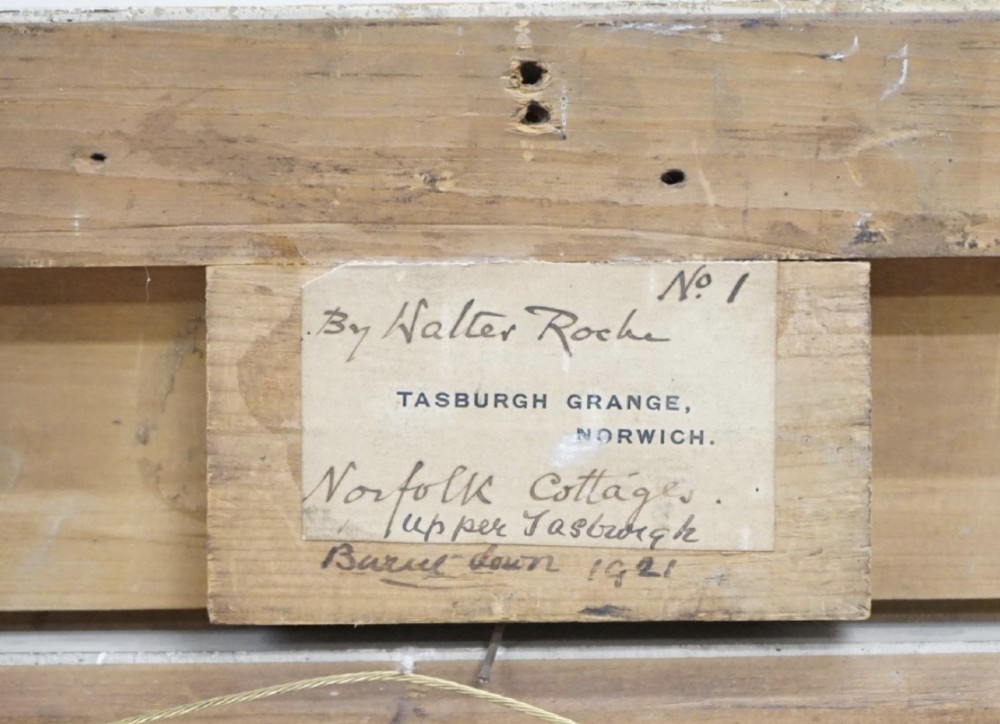 No. 1
By Walter Roche
TASBURGH GRANGE,
NORWICH.
Norfolk Cottages.
upper Tasburgh
Burnt down 1921